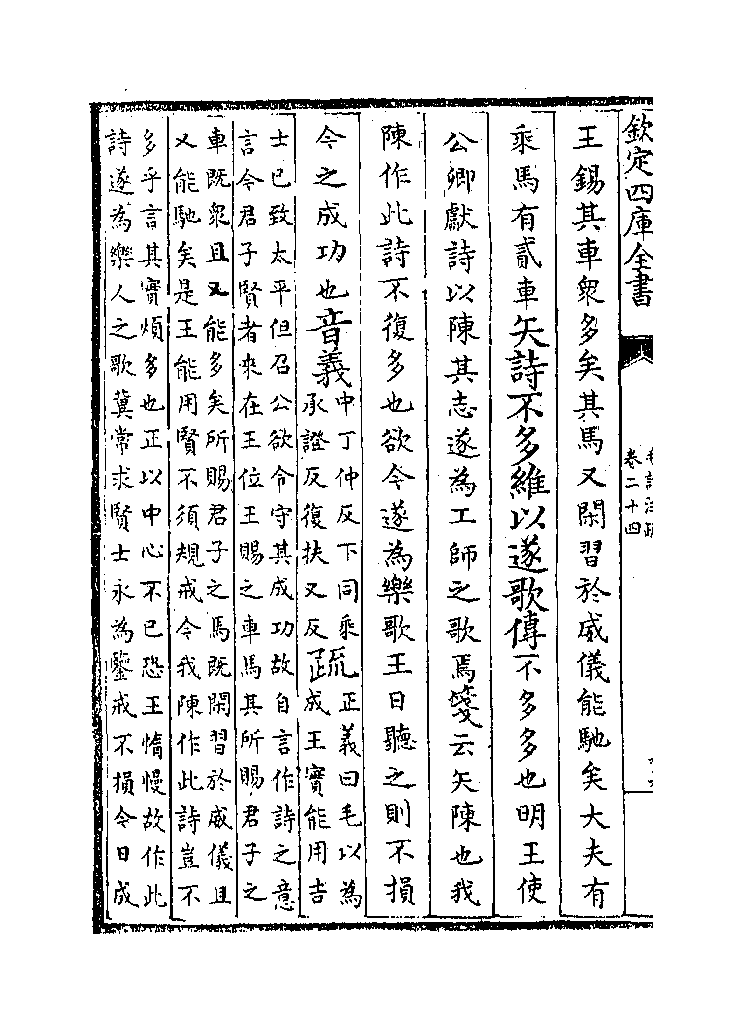 欽定四庫全書
卷二十四
王錫其車衆多矣其馬又閑習於威儀能馳矣大夫有
乘馬有貳車矢詩不多維以遂歌傳不多多也明王使
公卿獻詩以陳其志遂為工師之歌焉箋云矢陳也我
陳作此詩不復多也欲今遂為樂歌王日聽之則不損
今之成功也音義中丁仲反下同乘
承證反復扶又反疏正義曰毛以為
成王實能用吉
士已致太平但召公欲令守其成功故自言作詩之意
言令君子賢者來在王位王賜之車馬其所賜君子之
車既衆且又能多矣所賜君子之馬既閑習於威儀且
又能馳矣是王能用賢不須規戒令我陳作此詩豈不
多乎言其實煩多也正以中心不已恐王惰慢故作此
詩遂為樂人之歌冀常求賢士永為鑒戒不損今日成